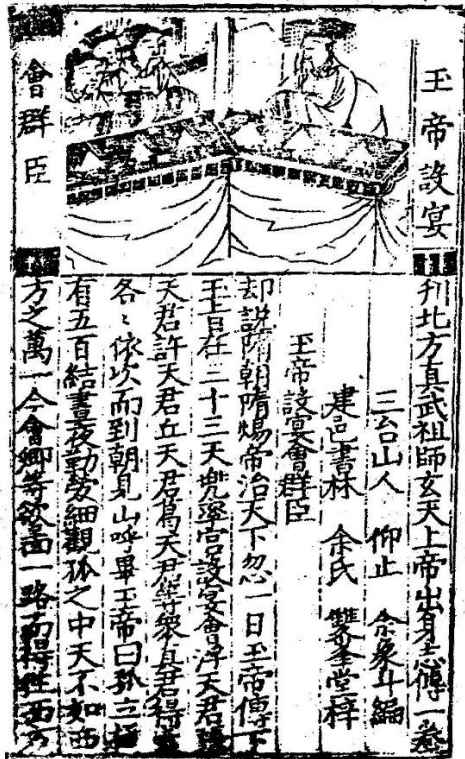 玉帝設宴
會群臣
刋北方真武祖師玄天上帝出身志傳一卷
三台山人 仰止 余象斗編
建邑書林 余氏 雙峯堂梓
玉帝設宴會群臣
却說隋朝隋煬帝治天下忽一日玉帝傳下
玉旨在三十三天兠率宮設宴會浮天君張
天君許天君丘天君葛天君等衆真君得旨
各〻依次而到朝見山呼畢玉帝曰孤立極
有五百結晝夜勤勞細觀孤之中天不如西
方之萬一今會卿等欲面一路